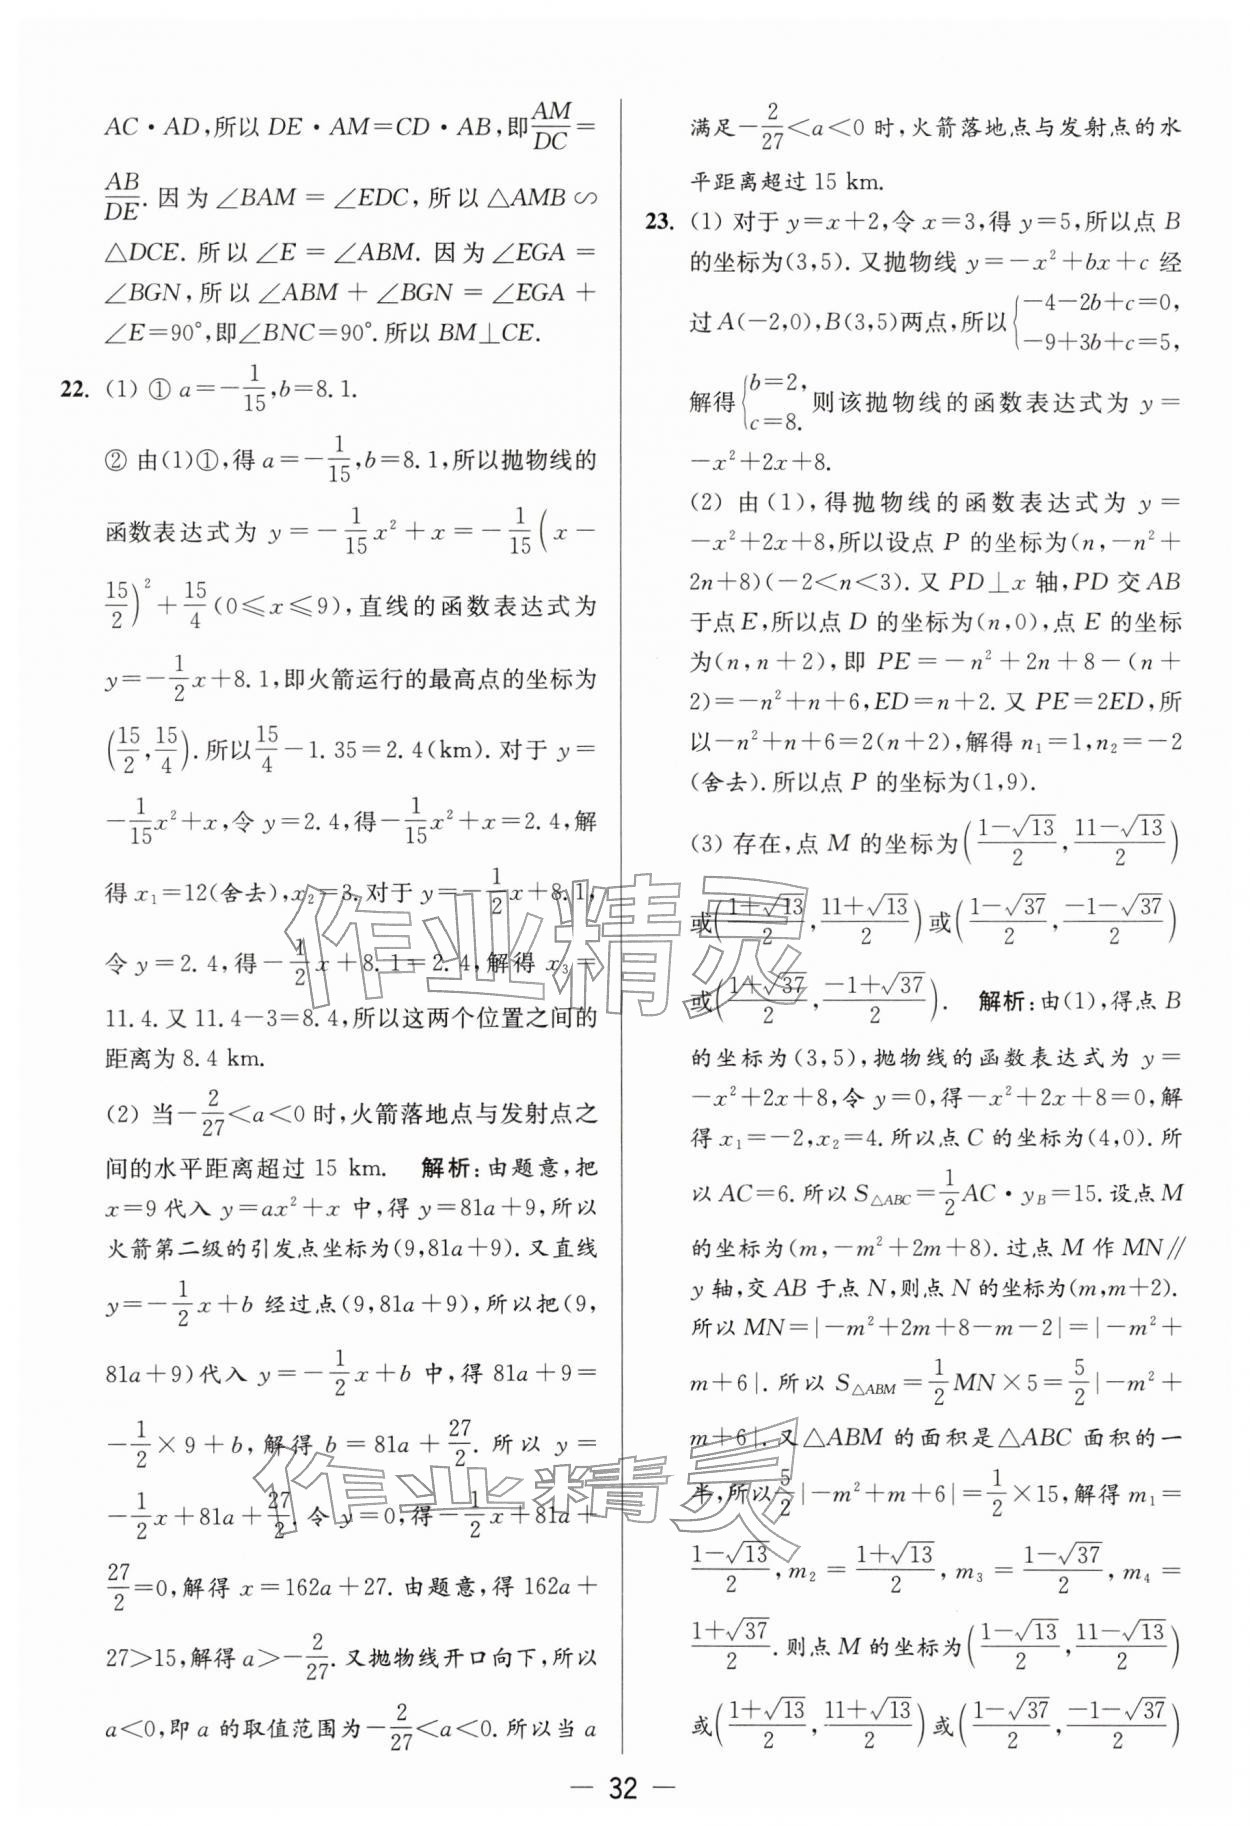 AC·AD,所以 DE·AM=CD·AB,即AM/DC=
AB/DE.因为∠BAM=∠EDC,所以△AMB∽
△DCE.所以∠E=∠ABM.因为∠EGA=
∠BGN,所以∠ABM+∠BGN=∠EGA+
∠E=90°,即∠BNC=90°.所以 BM⊥CE.
22. (1) ① a=-1/15,b=8.1.
② 由(1)①,得 a=-1/15,b=8.1,所以抛物线的
函数表达式为 y=-1/15x²+x=-1/15(x-
15/2)²+15/4(0≤x≤9),直线的函数表达式为
y=-1/2x+8.1,即火箭运行的最高点的坐标为
(15/2,15/4).所以15/4-1.35=2.4(km).对于 y=
-1/15x²+x,令 y=2.4,得-1/15x²+x=2.4,解
得 x₁=12(舍去),x₂=3.对于 y=-1/2x+8.1,
令 y=2.4,得-1/2x+8.1=2.4,解得 x₃=
11.4.又 11.4-3=8.4,所以这两个位置之间的
距离为 8.4 km.
(2) 当-2/27<a<0 时,火箭落地点与发射点之
间的水平距离超过 15 km. 解析:由题意,把
x=9 代入 y=ax²+x 中,得 y=81a+9,所以
火箭第二级的引发点坐标为(9,81a+9).又直线
y=-1/2x+b 经过点(9,81a+9),所以把(9,
81a+9)代入 y=-1/2x+b 中,得 81a+9=
-1/2×9+b,解得 b=81a+27/2.所以 y=
-1/2x+81a+27/2.令 y=0,得-1/2x+81a+
27/2=0,解得 x=162a+27.由题意,得 162a+
27>15,解得 a>-2/27.又抛物线开口向下,所以
a<0,即 a 的取值范围为-2/27<a<0.所以当 a
满足-2/27<a<0 时,火箭落地点与发射点的水
平距离超过 15 km.
23. (1) 对于 y=x+2,令 x=3,得 y=5,所以点 B
的坐标为(3,5).又抛物线 y=-x²+bx+c 经
过 A(-2,0),B(3,5)两点,所以{-4-2b+c=0,
-9+3b+c=5,
解得{b=2,
c=8.则该抛物线的函数表达式为 y=
-x²+2x+8.
(2) 由(1),得抛物线的函数表达式为 y=
-x²+2x+8,所以设点 P 的坐标为(n,-n²+
2n+8)(-2<n<3).又 PD⊥x 轴,PD 交 AB
于点 E,所以点 D 的坐标为(n,0),点 E 的坐标
为(n,n+2),即 PE=-n²+2n+8-(n+
2)=-n²+n+6,ED=n+2.又 PE=2ED,所
以-n²+n+6=2(n+2),解得 n₁=1,n₂=-2
(舍去).所以点 P 的坐标为(1,9).
(3) 存在,点 M 的坐标为((1-√13)/2,(11-√13)/2)
或((1+√13)/2,(11+√13)/2)或((1-√37)/2,(-1-√37)/2)
或((1+√37)/2,(-1+√37)/2). 解析:由(1),得点 B
的坐标为(3,5),抛物线的函数表达式为 y=
-x²+2x+8,令 y=0,得-x²+2x+8=0,解
得 x₁=-2,x₂=4.所以点 C 的坐标为(4,0).所
以 AC=6.所以 S△ABC=1/2AC·yB=15.设点 M
的坐标为(m,-m²+2m+8).过点 M 作 MN∥
y 轴,交 AB 于点 N,则点 N 的坐标为(m,m+2).
所以 MN=|-m²+2m+8-m-2|=|-m²+
m+6|.所以 S△ABM=1/2MN×5=5/2|-m²+
m+6|.又△ABM 的面积是△ABC 面积的一
半,所以5/2|-m²+m+6|=1/2×15,解得 m₁=
(1-√13)/2,m₂=(1+√13)/2,m₃=(1-√37)/2,m₄=
(1+√37)/2.则点 M 的坐标为((1-√13)/2,(11-√13)/2)
或((1+√13)/2,(11+√13)/2)或((1-√37)/2,(-1-√37)/2)
— 32 —
作业精灵
作业精灵